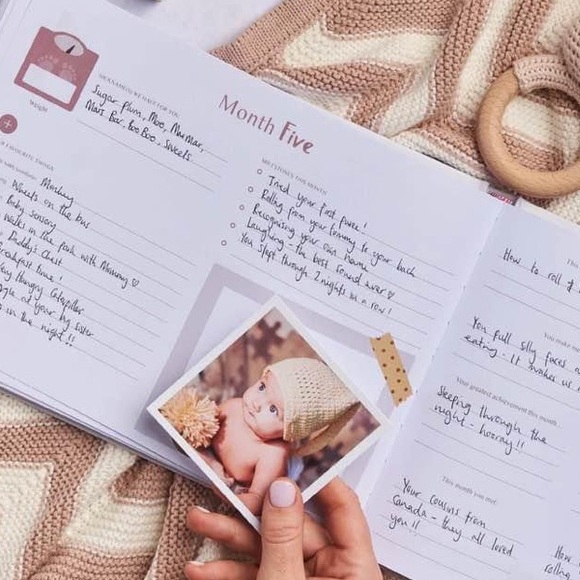 Weight
NICKNAMES WE HAVE FOR YOU
Sugar Plum, Moe, MorMar,
Mars Bar, Boo Boo, Sweets
FAVOURITE THINGS
Monkey
Wheels on the bus
Baby sensory
Walks in the park with Mummy ♡
Daddy's Chest
Breakfast time!
Hungry Caterpillar
at your big sister
in the night!!
Month Five
MILESTONES THIS MONTH
Tried your first puree!
Rolling from your tummy to your back
Recognising your own name
Laughing - the best sound ever ♡
You slept through 2 nights in a row!
This
How to roll
You make me
You pull silly faces
eating - It makes us
Your greatest achievement this month
Sleeping through the
night - hooray!!
This month you met
Your cousins from
Canada - they all loved
you!!
How